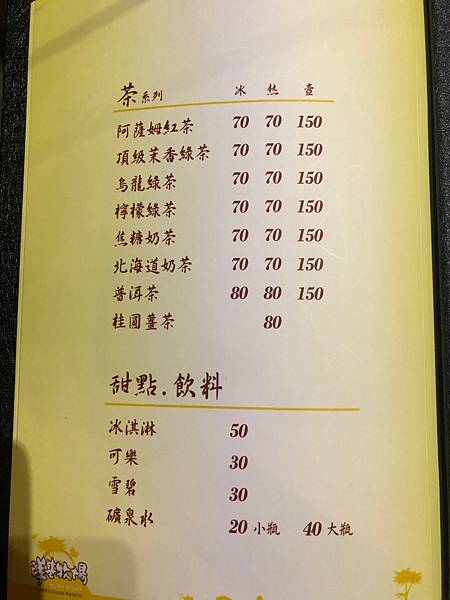 茶系列 冰 熱 壺
阿薩姆紅茶 70 70 150
頂級茉香綠茶 70 70 150
烏龍綠茶 70 70 150
檸檬綠茶 70 70 150
焦糖奶茶 70 70 150
北海道奶茶 70 70 150
普洱茶 80 80 150
桂圓薑茶 80
甜點.飲料
冰淇淋 50
可樂 30
雪碧 30
礦泉水 20 小瓶 40 大瓶
牧場
DUDE RANCH